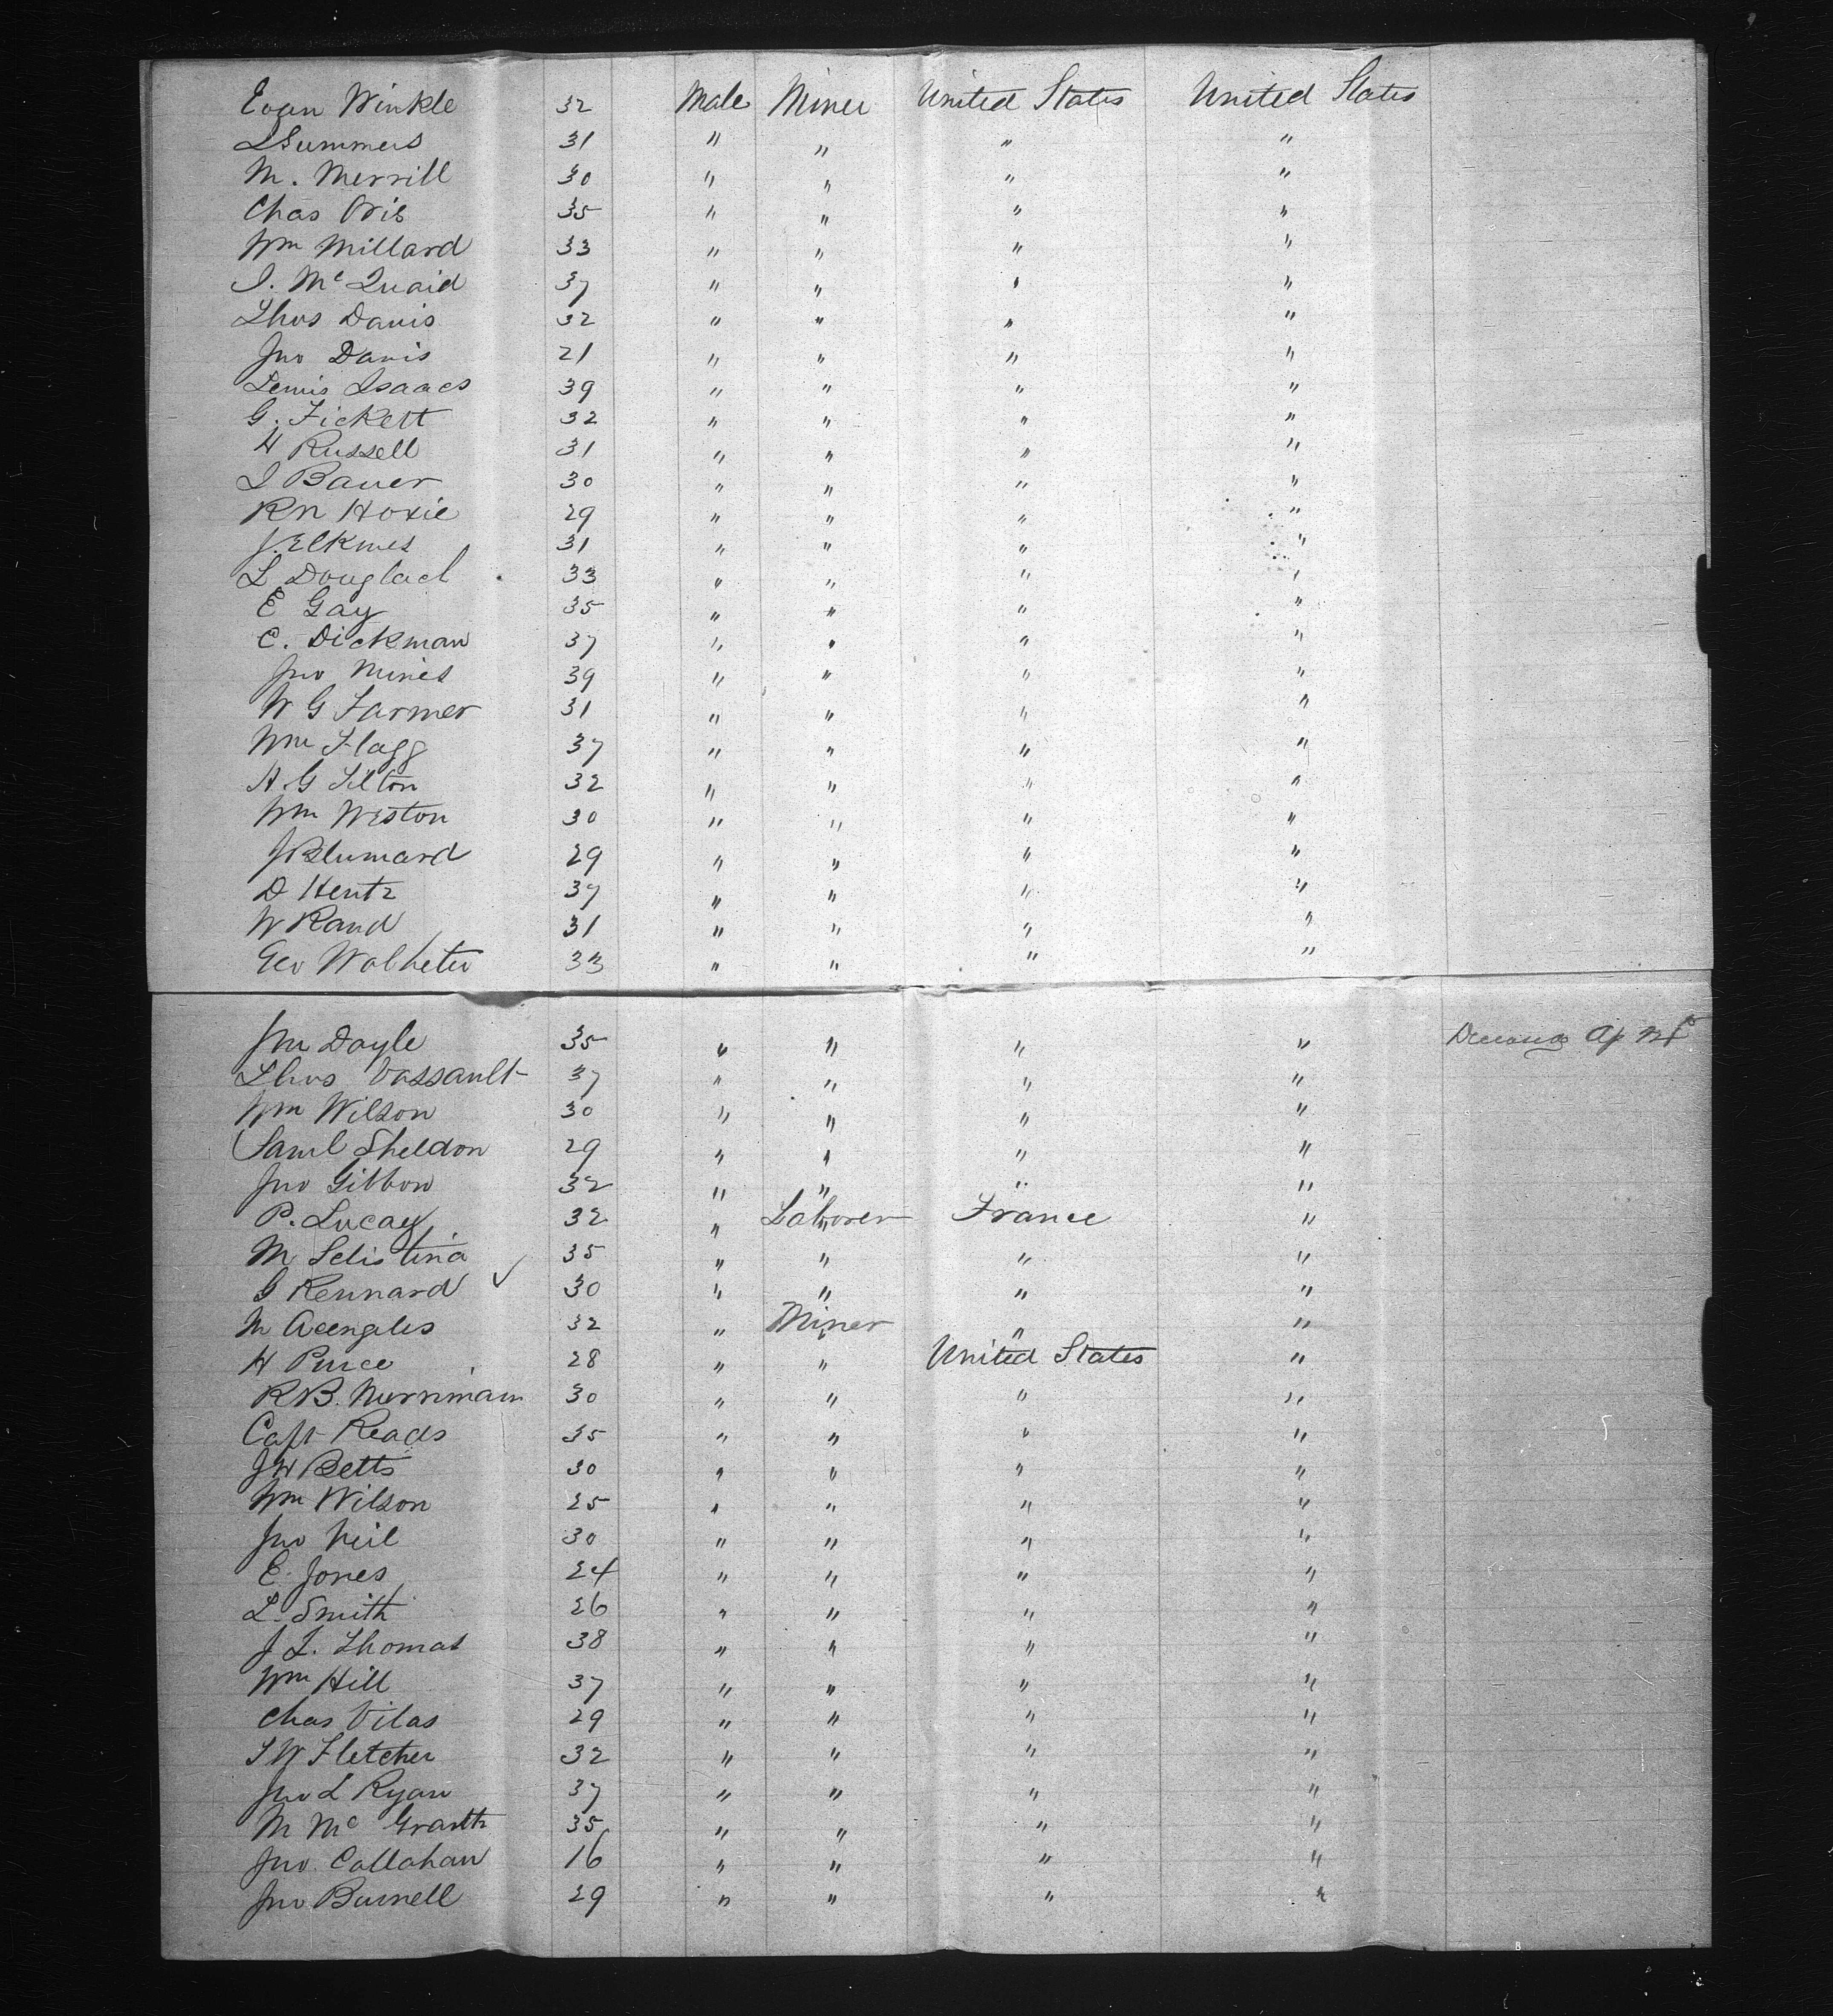 Evan Winkle 32 Male Miner United States United States
L Summers 31 " " " "
M. Merrill 30 " " " "
Chas Oris 35 " " " "
Wm Millard 33 " " " "
J. McQuaid 37 " " " "
Thos Davis 32 " " " "
Jno Davis 21 " " " "
Lewis Isaacs 39 " " " "
G. Fickett 32 " " " "
H Russell 31 " " " "
J Bauer 30 " " " "
R N Hoxie 29 " " " "
J. 31 " " " "
L 33 " " " "
E Gay 35 " " " "
C. Dickman 37 " " " "
Jno Mines 39 " " " "
W G Farmer 31 " " " "
Wm Flagg 37 " " " "
A. G Tilton 32 " " " "
Wm Weston 30 " " " "
J Blumard 29 " " " "
D Hentz 37 " " " "
W Rand 31 " " " "
Geo 33 " " " "
Jno Doyle 35 " " " "
Thos Vassault 37 " " " "
Wm Wilson 30 " " " "
Saml Sheldon 29 " " " "
Jno Gibbon 32 " " " "
P. Lucay 32 " Laborer France "
M 35 " " " "
G Rennard ✓ 30 " " " "
M 32 " Miner " "
H Price 28 " " United States "
R B. Merrimam 30 " " " "
Capt Reads 35 " " " "
J W Betts 30 " " " "
Wm Wilson 25 " " " "
Jno Neil 30 " " " "
E. Jones 24 " " " "
L. Smith 26 " " " "
J L. Thomas 38 " " " "
Wm Hill 37 " " " "
Chas Vilas 29 " " " "
S W Fletcher 32 " " " "
Jno L Ryan 37 " " " "
M Mc Grath 35 " " " "
Jno. Callahan 16 " " " "
Jno Burnell 29 " " " "